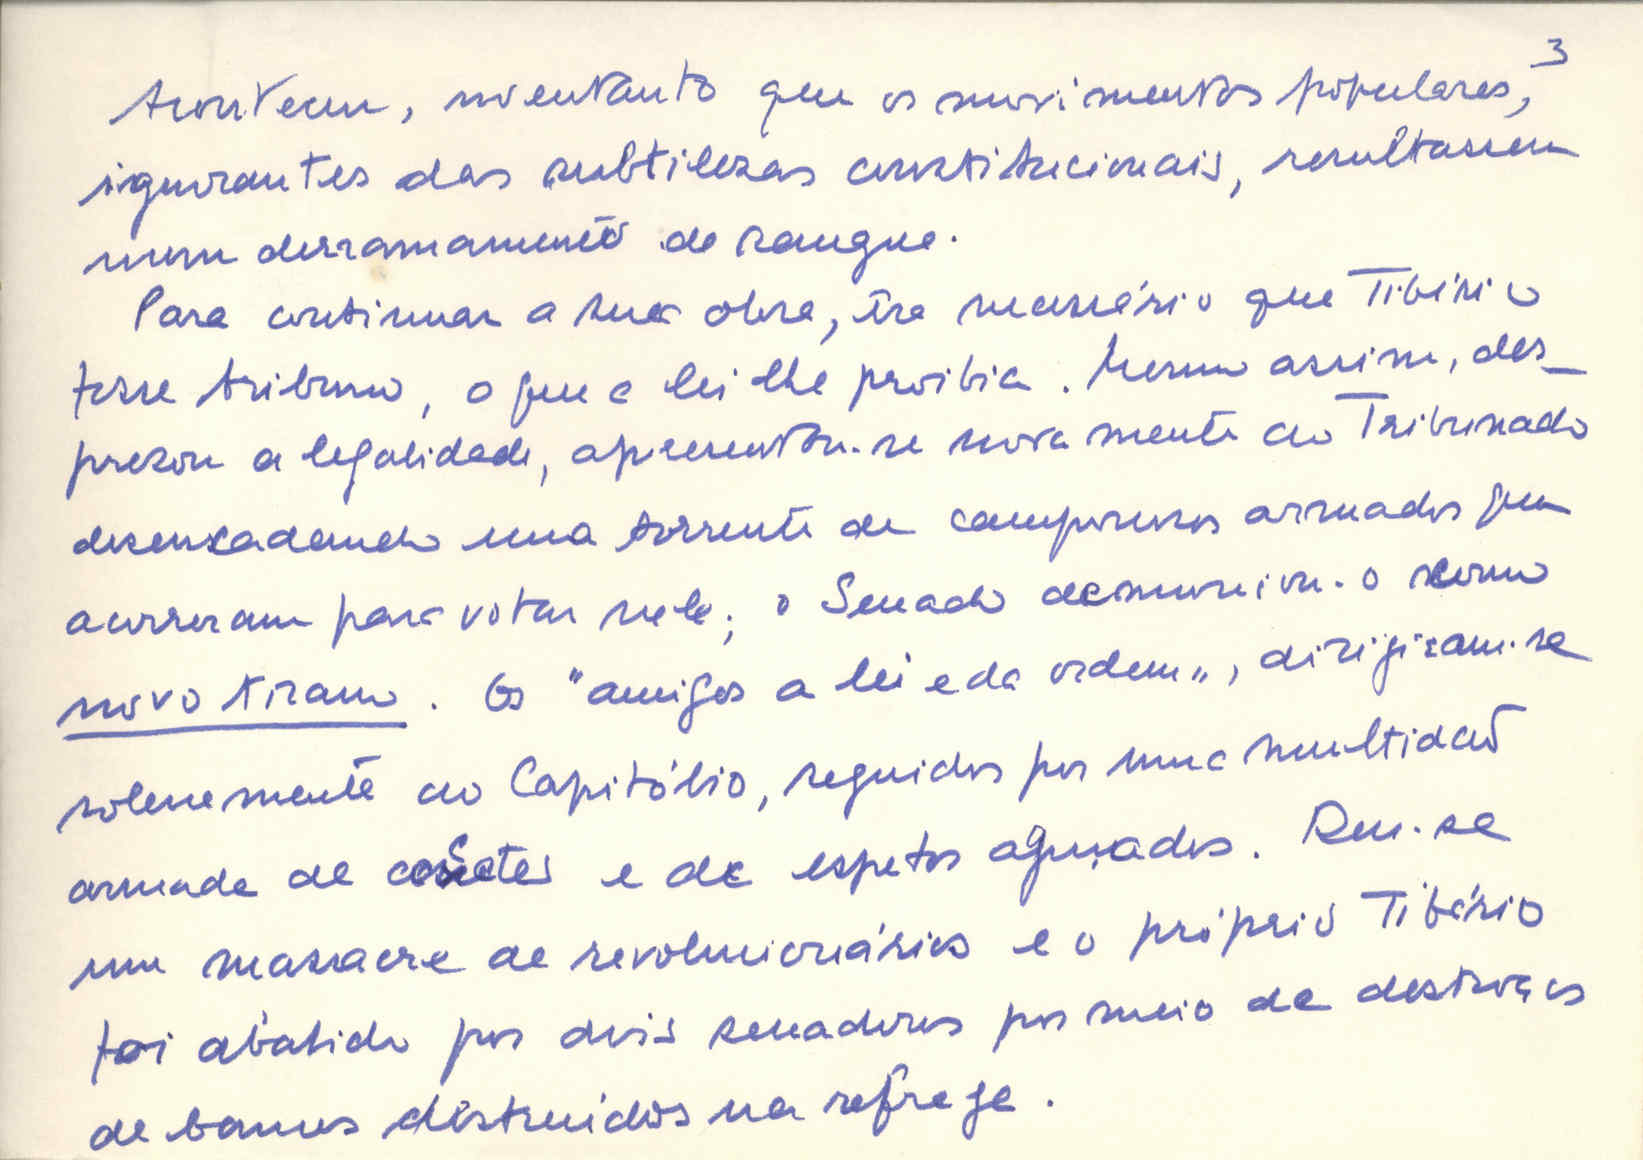 3
Aconteceu, no entanto que os movimentos populares,
ignorantes das subtilezas constitucionais, resultassem
num derramamento de sangue.
Para continuar a sua obra, era necessário que Tibério
fosse tribuno, o que a lei lhe proibia. Mesmo assim, des_
prezou a legalidade, apresentou-se novamente ao Tribunado
desencadeando uma torrente de camponeses armados que
acorreram para votar nele; o Senado denunciou-o como
novo tirano. Os "amigos a lei e da ordem", dirigiram-se
solenemente ao Capitólio, seguidos por uma multidão
armada de cacetes e de espetos aguçados. Deu-se
um massacre de revolucionários e o próprio Tibério
foi abatido por dois senadores por meio de destroços
de bancos destruídos na refrega.